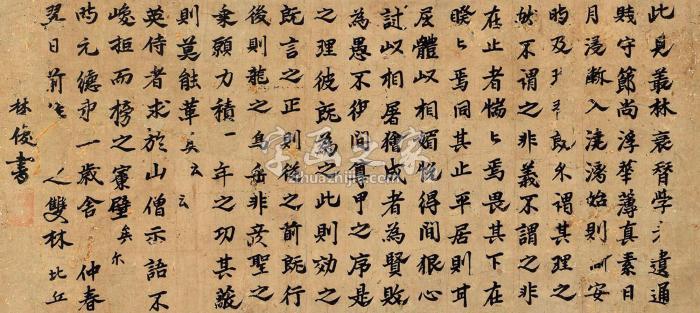 此見叢林衰替學遺通
賤守節尚浮華薄真素日
月浸漸入澆漓始則安
時及既尔謂其理之
然不謂之非義不謂之非
在止者惴々焉畏其下在
睽々焉同其止平居則甘
屈體以相媚悅得間狠心
試以相屠獪成者為賢敗
為愚不復問尊甲之序是
之理彼既為之此則効之
既言之正則從之前既行
後則襲之烏乎非彥聖之
乘願力積一年之功其蔽
則莫能革矣云云
英侍者求於山僧示語不
峻拒而榜之室壁矣尔
時元德一歲舍仲春
翌日前之雙林比丘
林俊書
字画之家